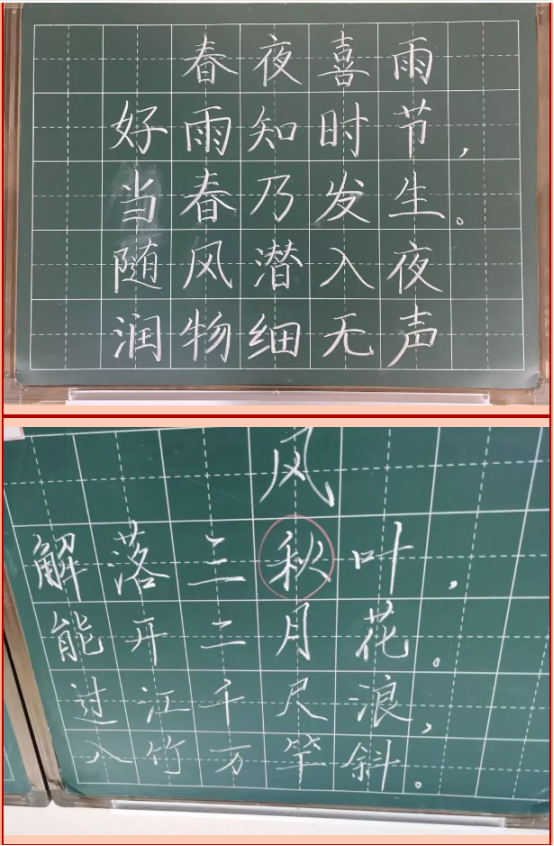 春夜喜雨
好雨知时节，
当春乃发生。
随风潜入夜
润物细无声
风
解落三秋叶，
能开二月花。
过江千尺浪，
入竹万竿斜。